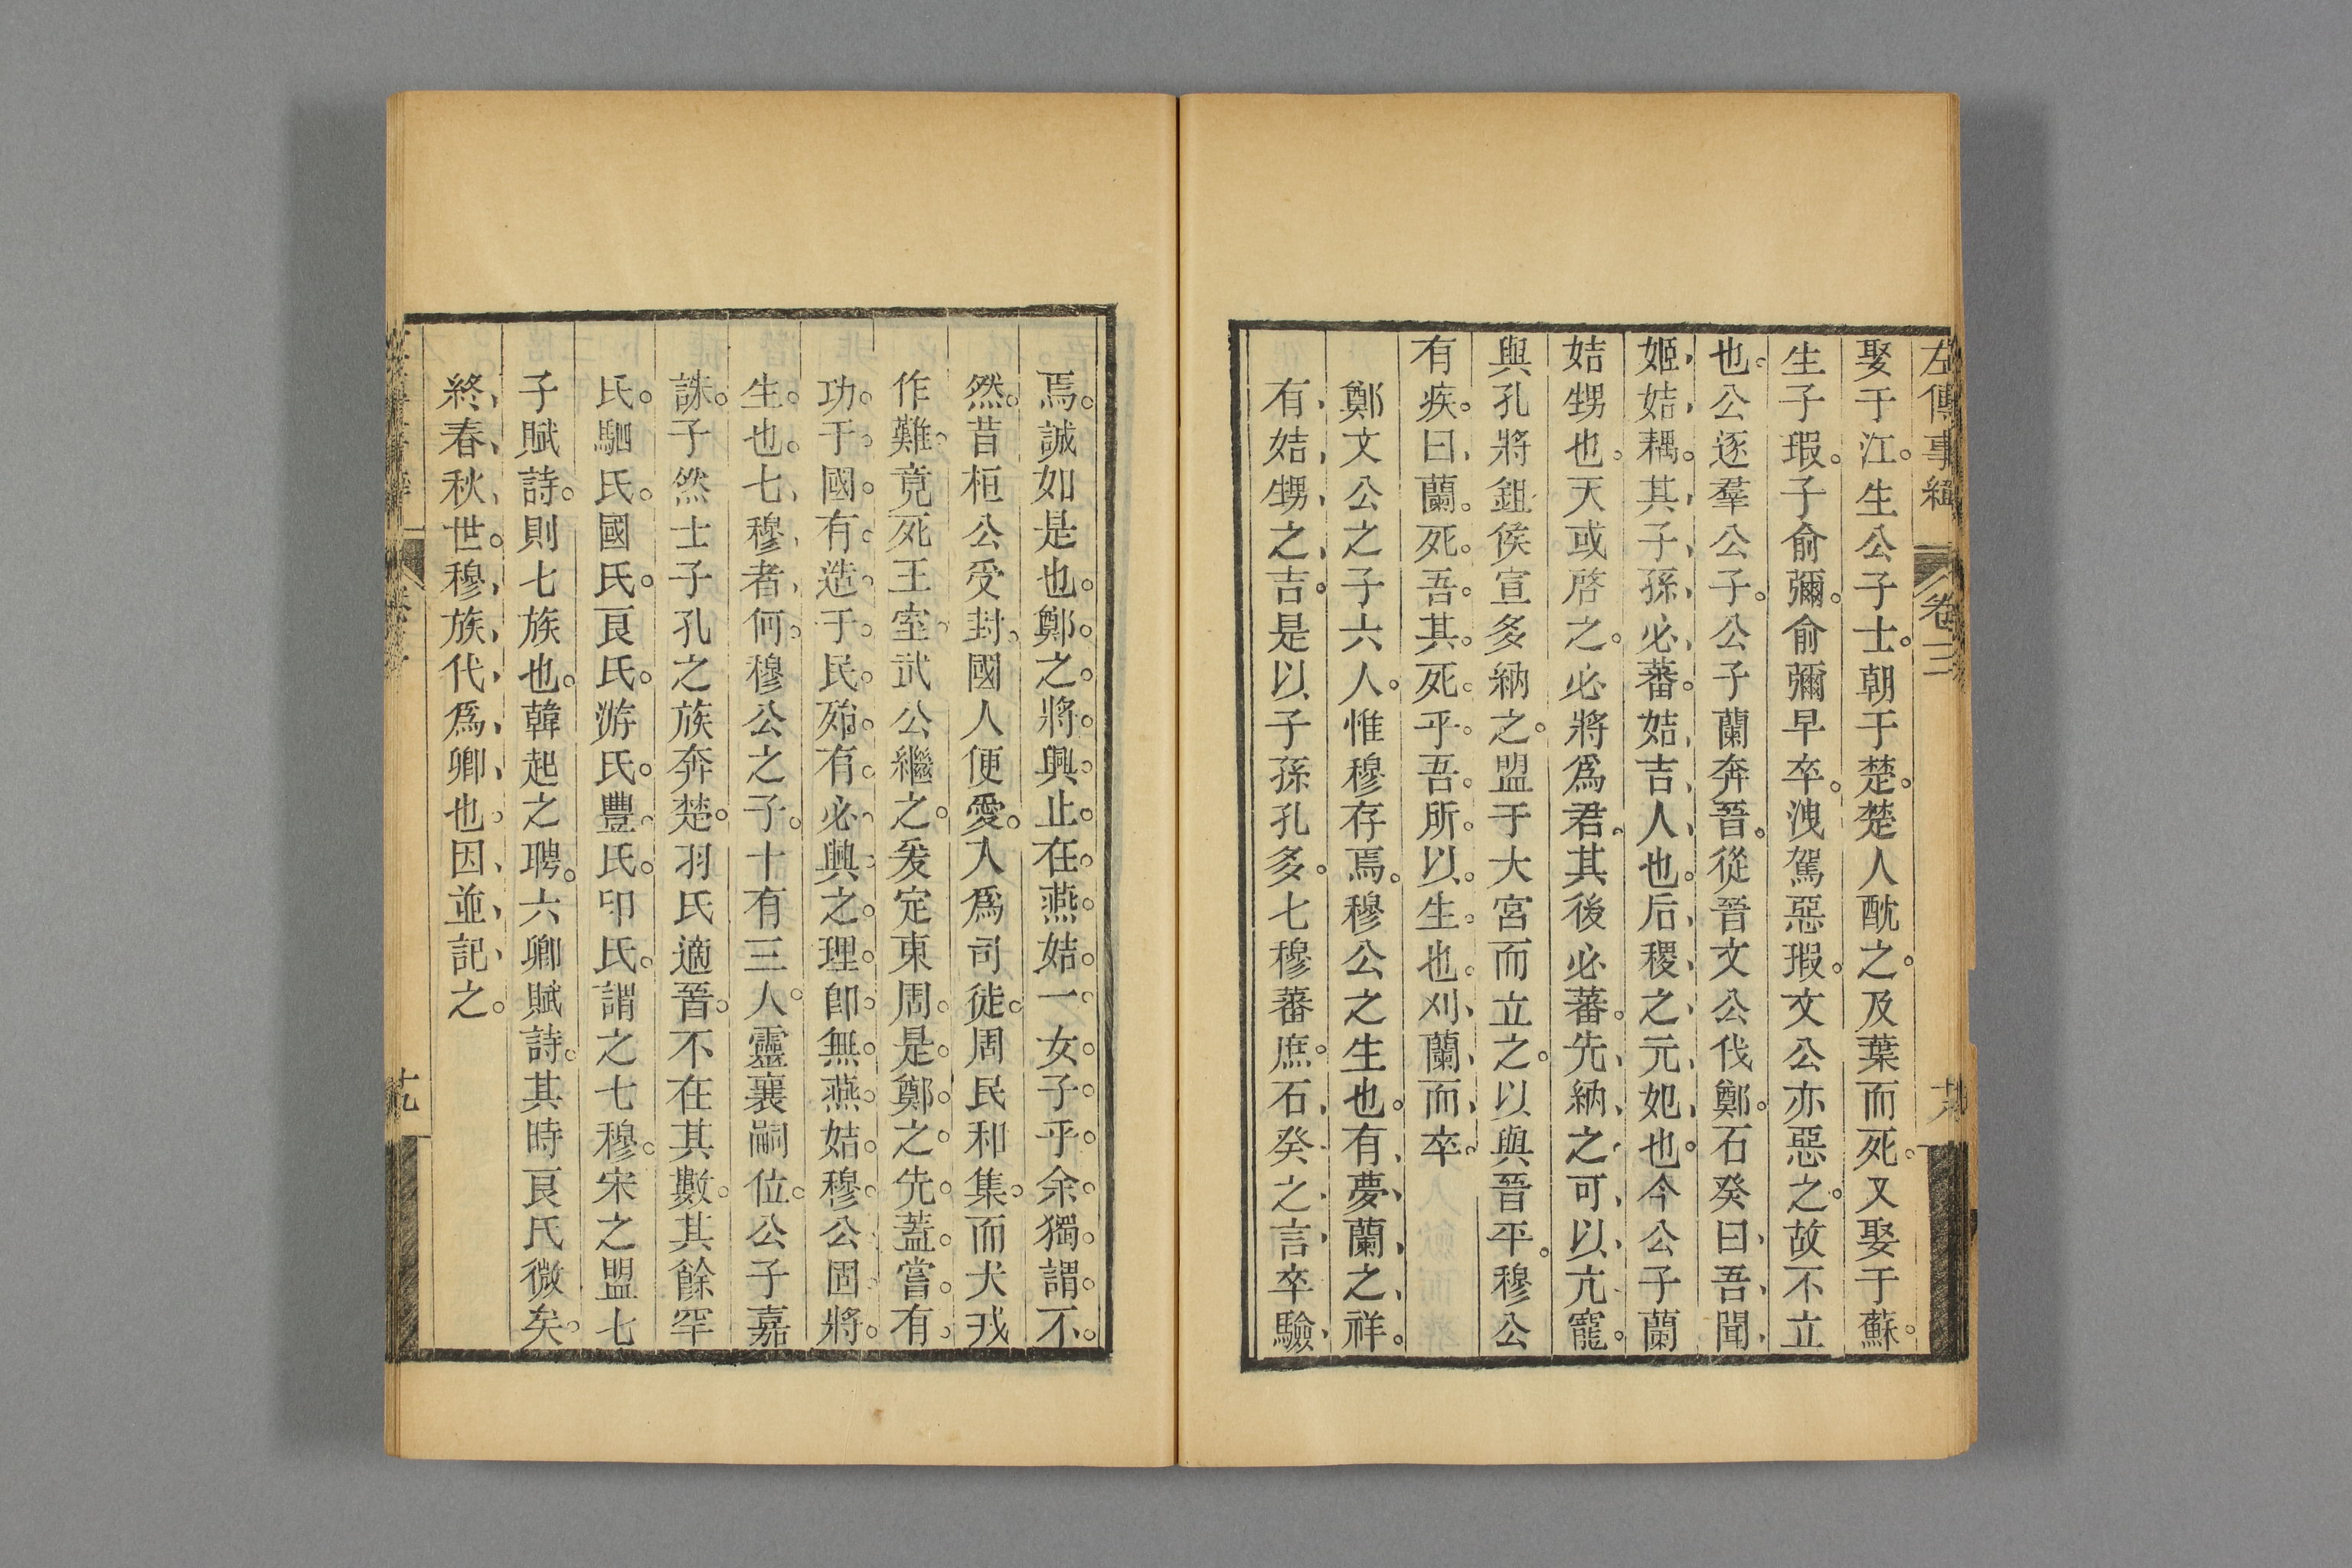 左傳事緯 卷三
娶于江。生公子士。朝于楚。楚人酖之。及葉而死。又娶于蘇。
生子瑕。子俞彌。俞彌早卒。洩駕惡瑕。文公亦惡之。故不立
也。公逐羣公子。公子蘭奔晉。從晉文公伐鄭。石癸曰、吾、聞、
姬、姞、耦。其、子、孫、必、蕃。姞、吉、人、也。后、稷、之、元、妃、也。今公子蘭
姞甥也。天或啓之。必將爲君。其後必蕃。先、納、之、可、以、亢、寵。
與孔將鉏侯宣多納之。盟于大宮而立之。以與晉平。穆公
有疾。曰、蘭。死。吾。其。死。乎。吾。所。以。生。也。刈、蘭、而、卒。
鄭文公之子六人。惟穆存焉。穆公之生也。有、夢、蘭、之、祥。
有、姞、甥、之、吉。是以子孫孔多。七穆蕃庶。石、癸、之、言、卒驗、
焉。誠如是也。鄭。之。將。興。止。在。燕。姞。一。女。子。乎。余。獨。謂。不。
然。昔桓公受封。國人便愛。入爲司徒。周民和集。而犬戎
作難。竟死王室。武公繼之。爰定東周。是。鄭。之。先。蓋。嘗。有。
功。于。國。有。造。于。民。殆。有。必。興。之。理。卽。無。燕。姞。穆。公。固。將。
生。也。七、穆、者、何。穆公之子。十有三人。靈襄嗣位。公子嘉
誅。子然士子孔之族奔楚。羽氏適晉。不在其數。其餘罕
氏。駟氏。國氏。良氏。游氏。豐氏。印氏。謂之七穆。宋之盟七
子賦詩。則七族也。韓起之聘。六卿賦詩。其時良氏微矣。
終、春、秋、世。穆、族、代、爲、卿、也。因、並、記、之。